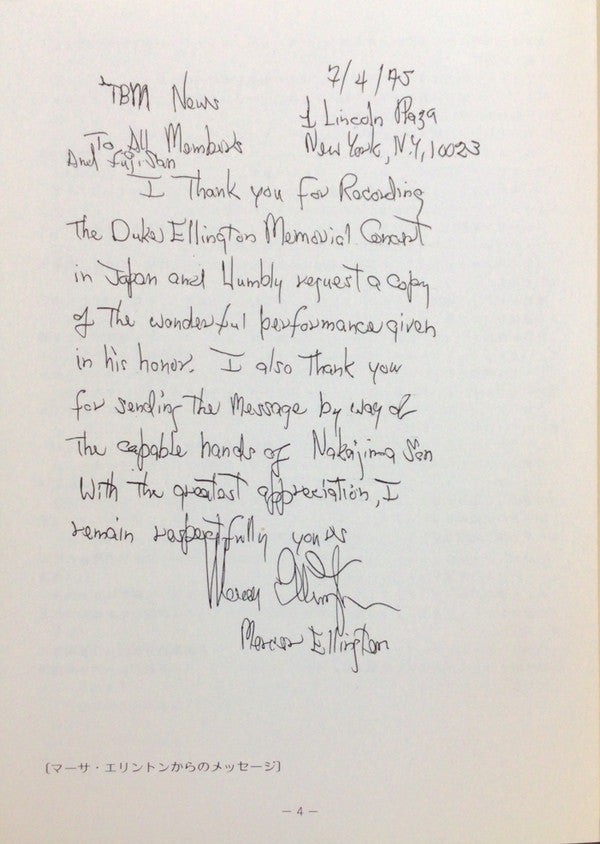 TBM News
7/4/75
1 Lincoln Plaza
New York, N.Y, 10023
To All Members
And Fuji San
I Thank you for Recording
The Duke Ellington Memorial Concert
in Japan and Humbly request a copy
of The wonderful performance given
in his honor. I also Thank you
for sending The Message by way of
The capable hands of Nakajima San
With The greatest appreciation, I
remain respectfully yours
Mercer Ellington
Mercer Ellington
〔マーサ・エリントンからのメッセージ〕
— 4 —